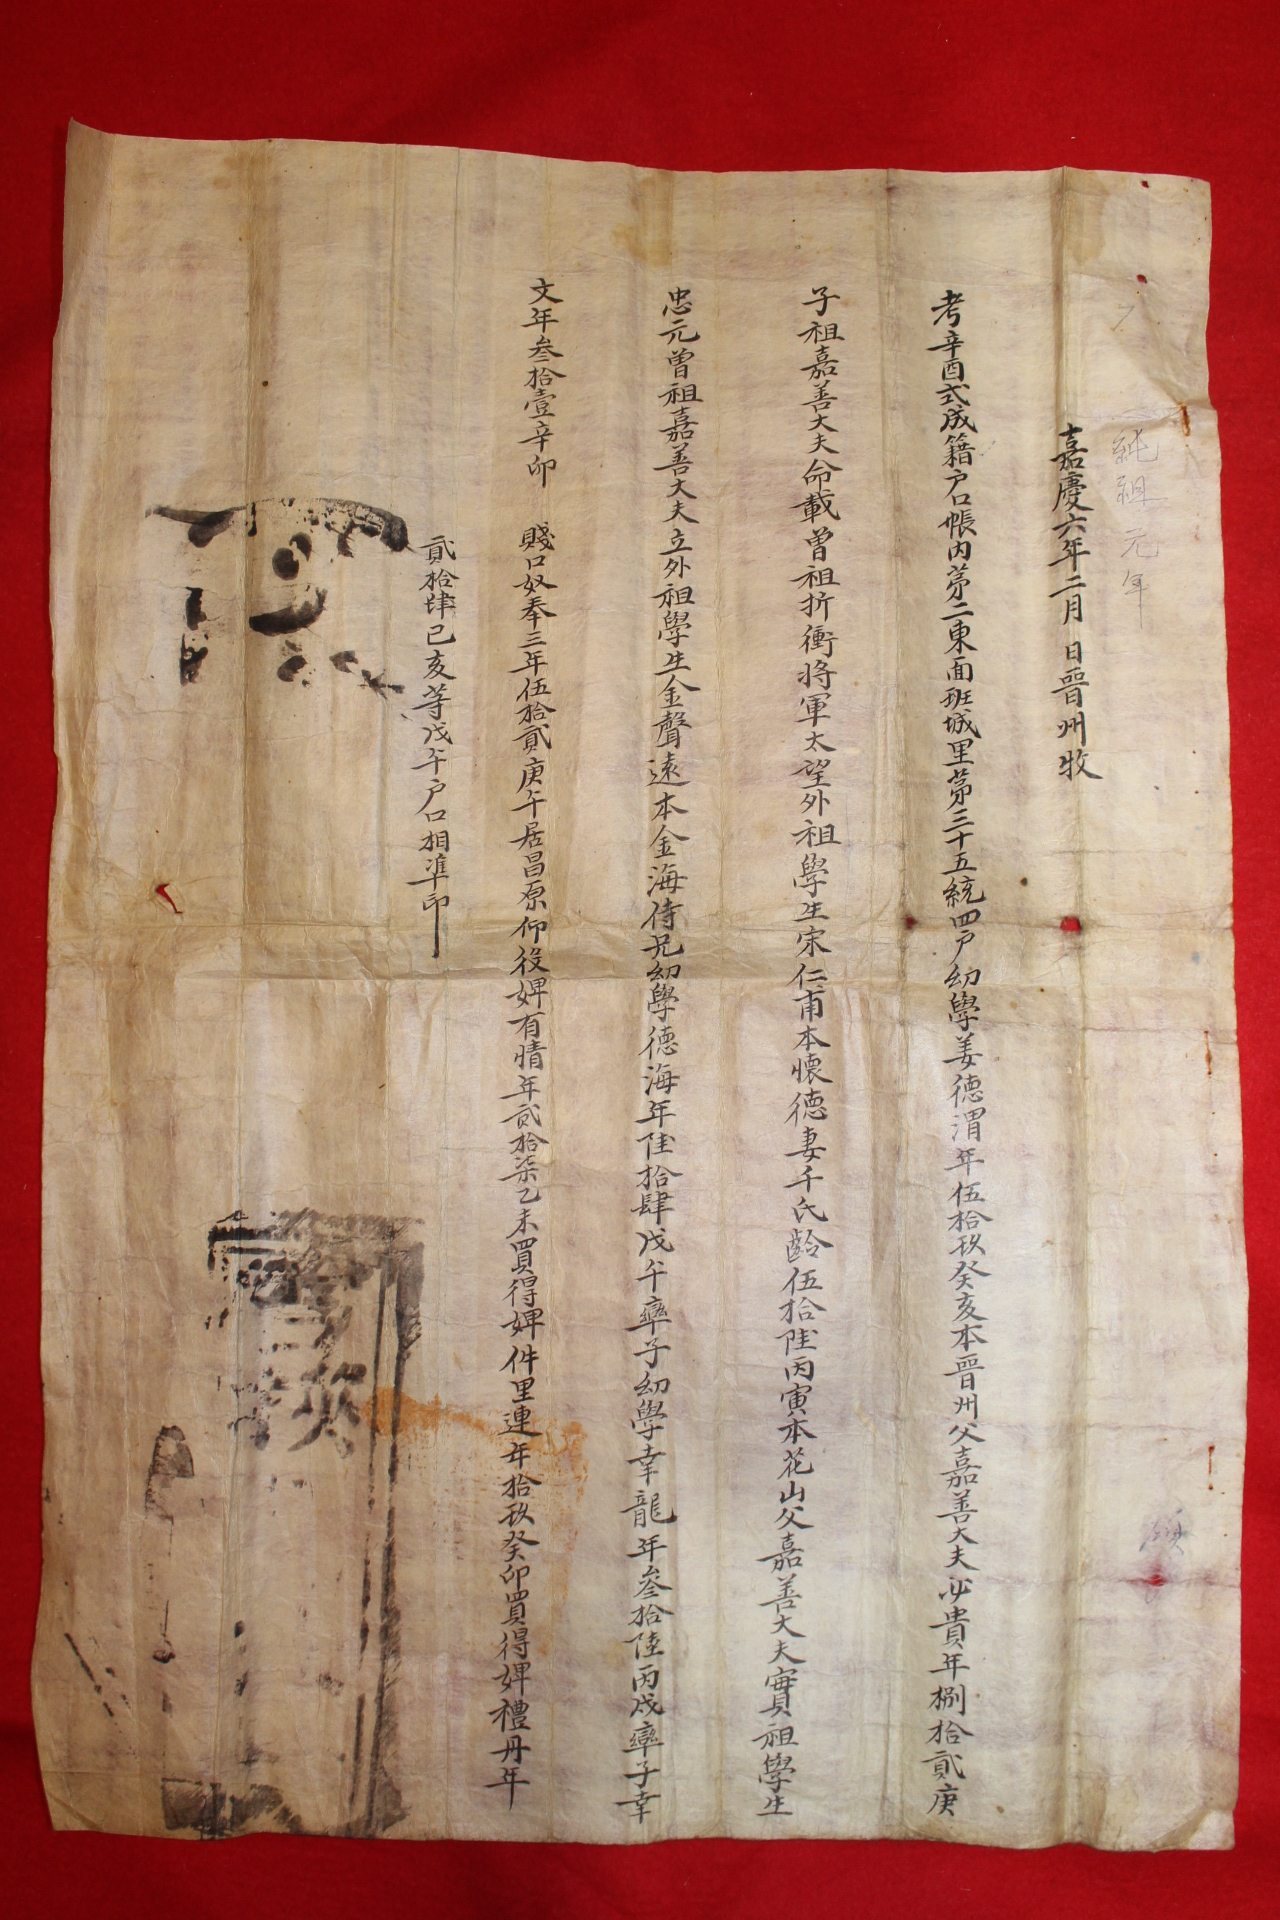 純祖元年
嘉慶六年二月 日晋州牧
考辛酉式成籍户口帳內第二東面班城里第三十五統四户幼學姜德渭年伍拾玖癸亥本晋州父嘉善大夫必貴年捌拾貳庚
子祖嘉善大夫命載曾祖折衝將軍太望外祖學生宋仁甫本懷德妻千氏齡伍拾陸丙寅本花山父嘉善大夫實祖學生
忠元曾祖嘉善大夫立外祖學生金聲遠本金海侍兄幼學德海年陸拾肆戊午率子幼學幸龍年叄拾陸丙戌率子幸
文年叄拾壹辛卯 賤口奴奉三年伍拾貳庚午居昌原仰役婢有情年貳拾柒乙未買得婢件里連年拾玖癸卯買得婢禮丹年
貳拾肆己亥等戊午户口相準印